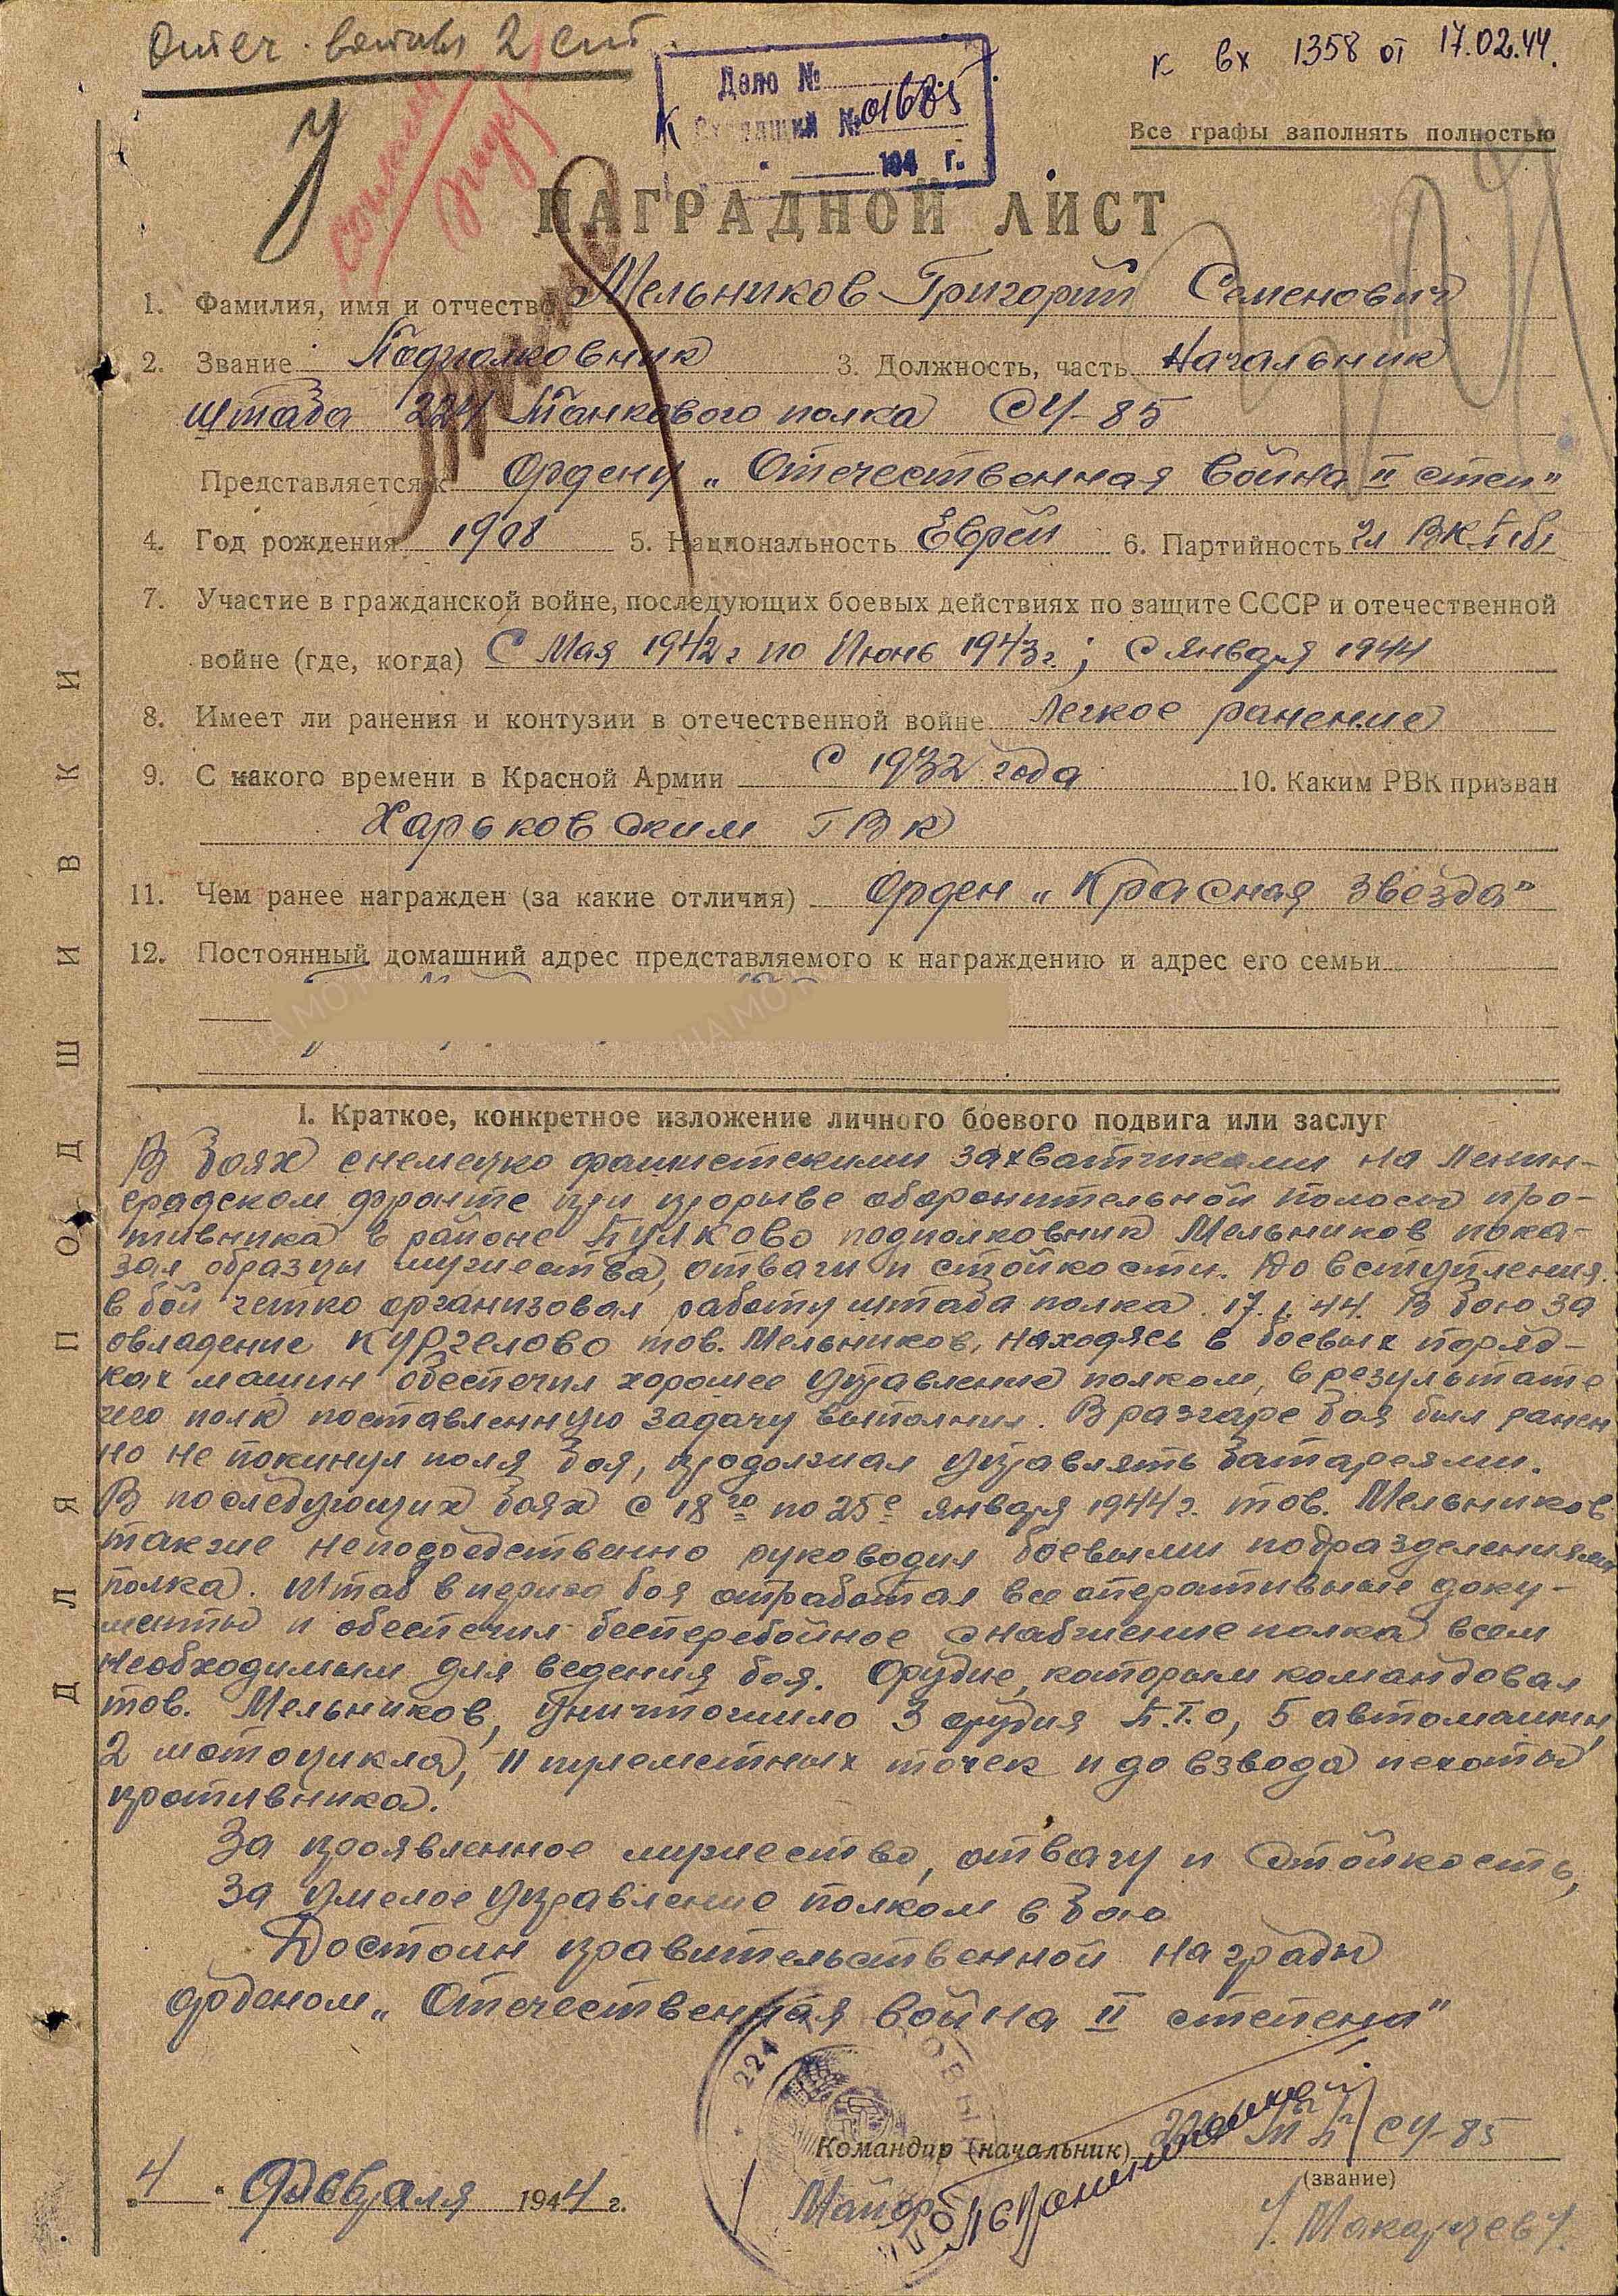 Отеч. война 2 ст.
к вх 1358 от 17.02.44.
Дело №
К Входящий № 01685
194 г.
Все графы заполнять полностью
НАГРАДНОЙ ЛИСТ
1. Фамилия, имя и отчество Мельников Григорий Семенович
2. Звание Подполковник 3. Должность, часть Начальник
штаба 224 Танкового полка СУ-85
Представляется к Ордену „Отечественная война II степ"
4. Год рождения 1908 5. Национальность Еврей 6. Партийность чл ВКП(б)
7. Участие в гражданской войне, последующих боевых действиях по защите СССР и отечественной
войне (где, когда) С Мая 1942 г по Июнь 1943 г.; с января 1944
8. Имеет ли ранения и контузии в отечественной войне Легкое ранение
9. С какого времени в Красной Армии с 1932 года 10. Каким РВК призван
Харьковским ГВК
11. Чем ранее награжден (за какие отличия) Орден „Красная звезда"
12. Постоянный домашний адрес представляемого к награждению и адрес его семьи
I. Краткое, конкретное изложение личного боевого подвига или заслуг
В боях с немецко фашистскими захватчиками на Ленин-
градском фронте при прорыве оборонительной полосы про-
тивника в районе Пулково подполковник Мельников пока-
зал образцы мужества, отваги и стойкости. До вступления
в бой четко организовал работу штаба полка. 17.1.44. В бою за
овладение Кургелово тов. Мельников, находясь в боевых поряд-
ках машин обеспечил хорошее управление полком, в результате
чего полк поставленную задачу выполнил. В разгаре боя был ранен
но не покинул поля боя, продолжал управлять батареями.
В последующих боях с 18го по 25е января 1944 г. тов. Мельников
также непосредственно руководил боевыми подразделениями
полка. Штаб в период боя отработал все оперативные доку-
менты и обеспечил бесперебойное снабжение полка всем
необходимым для ведения боя. Орудие, которым командовал
тов. Мельников, уничтожило 3 орудия П.Т.О, 5 автомашин,
2 мотоцикла, 11 пулеметных точек и до взвода пехоты
противника.
За проявленное мужество, отвагу и стойкость,
за умелое управление полком в бою
Достоин правительственной награды
орденом „Отечественная война II степени"
224
Командир (начальник) 224 ТП СУ-85
(звание)
„4" Февраля 1944 г.
Майор
/Макарчев/.
ДЛЯ ПОДШИВКИ